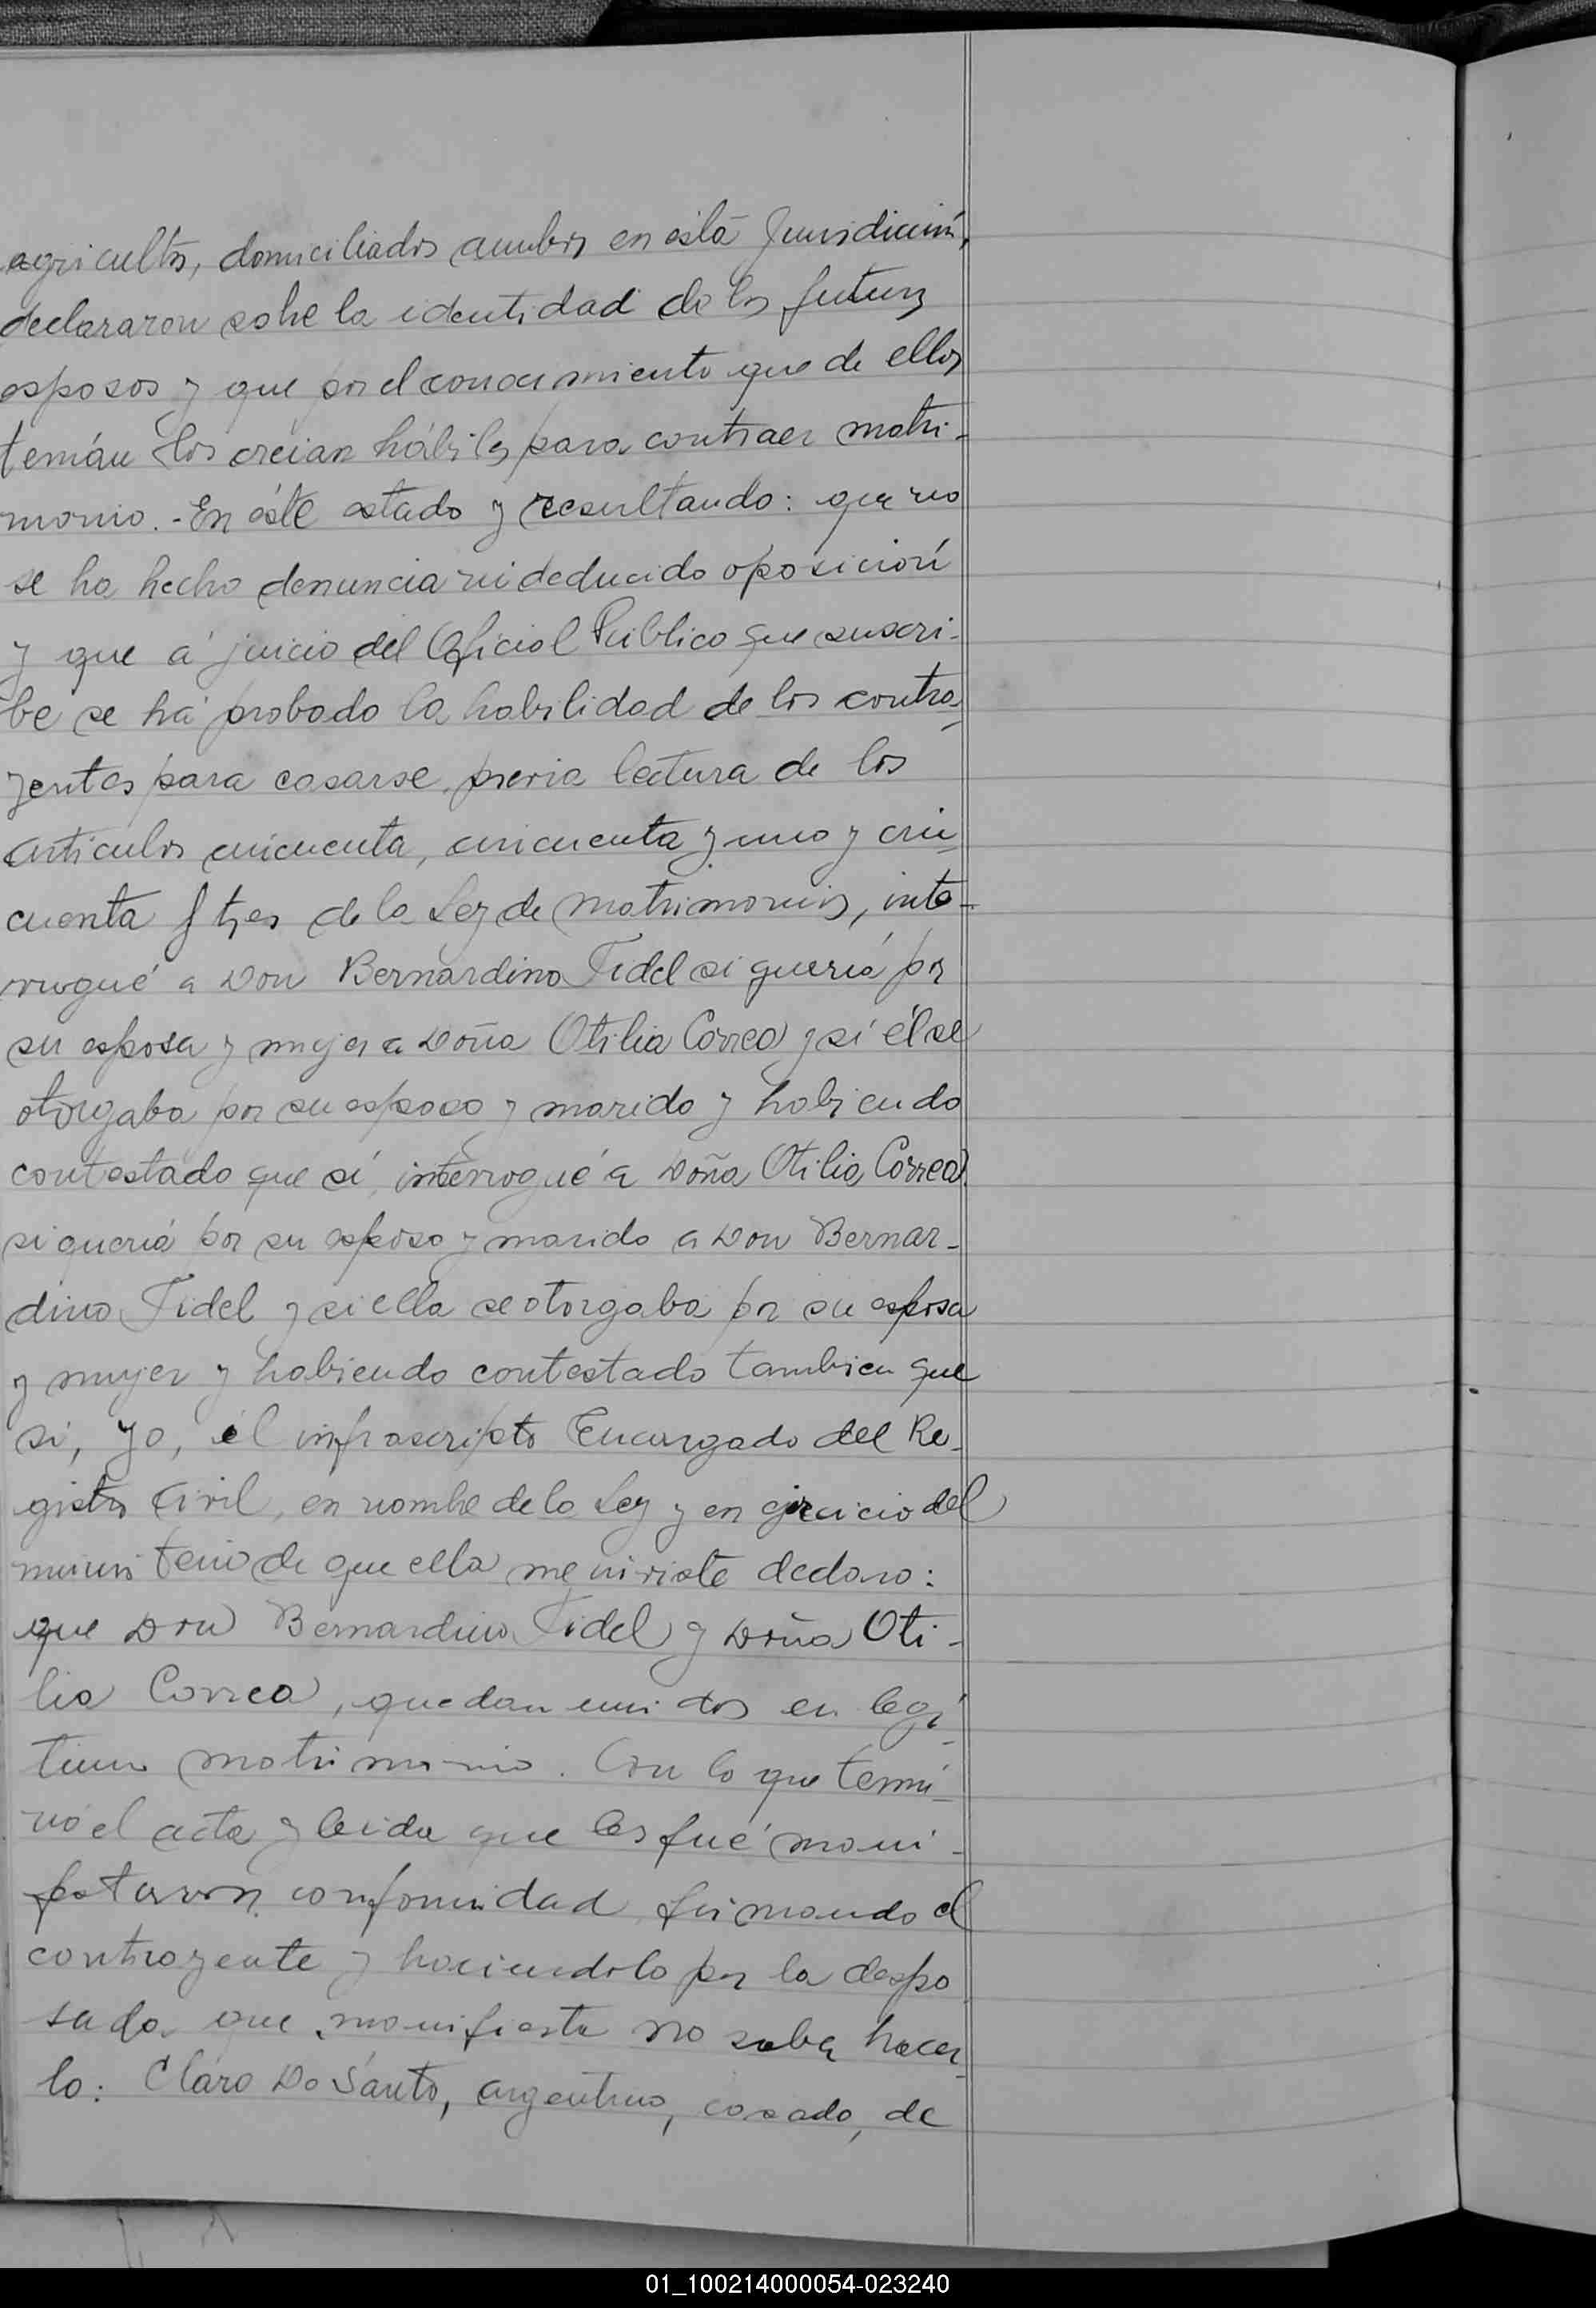 agricultor, domiciliados ambos en ésta Jurisdicción,
declararon sobre la identidad de los futuros
esposos y que por el conocimiento que de ellos
tenían los creian hábiles para contraer matri-
monio. - En éste estado y resultando: que no
se ha hecho denuncia ni deducido oposición
y que á juicio del Oficial Público que suscri-
be se há probado la habilidad de los contra-
yentes para casarse, previa lectura de los
articulos cincuenta, cincuenta y uno y cin-
cuenta y tres de la Ley de Matrimonios, inte-
rrogué a Don Bernardino Fidel si quería por
su esposa y mujer a Doña Otilia Correa y si él se
otorgaba por su esposo y marido y habiendo
contestado que sí, interrogué a Doña Otilia Correa
si quería por su esposo y marido a Don Bernar-
dino Fidel y si ella se otorgaba por su esposa
y mujer y habiendo contestado tambien que
si, yo, el infrascripto Encargado del Re-
gistro Civil, en nombre de la Ley y en ejercicio del
ministerio de que ella me inviste declaro:
que Don Bernardino Fidel y Doña Oti-
lia Correa, quedan unidos en legí-
timo matrimonio. Con lo que termi-
nó el acta y leida que les fué mani-
festaron conformidad firmando el
contrayente y haciendolo por la despo
sada que manifiesta no saber hacer-
lo: Claro Do Santo, argentino, casado, de
01_100214000054-023240